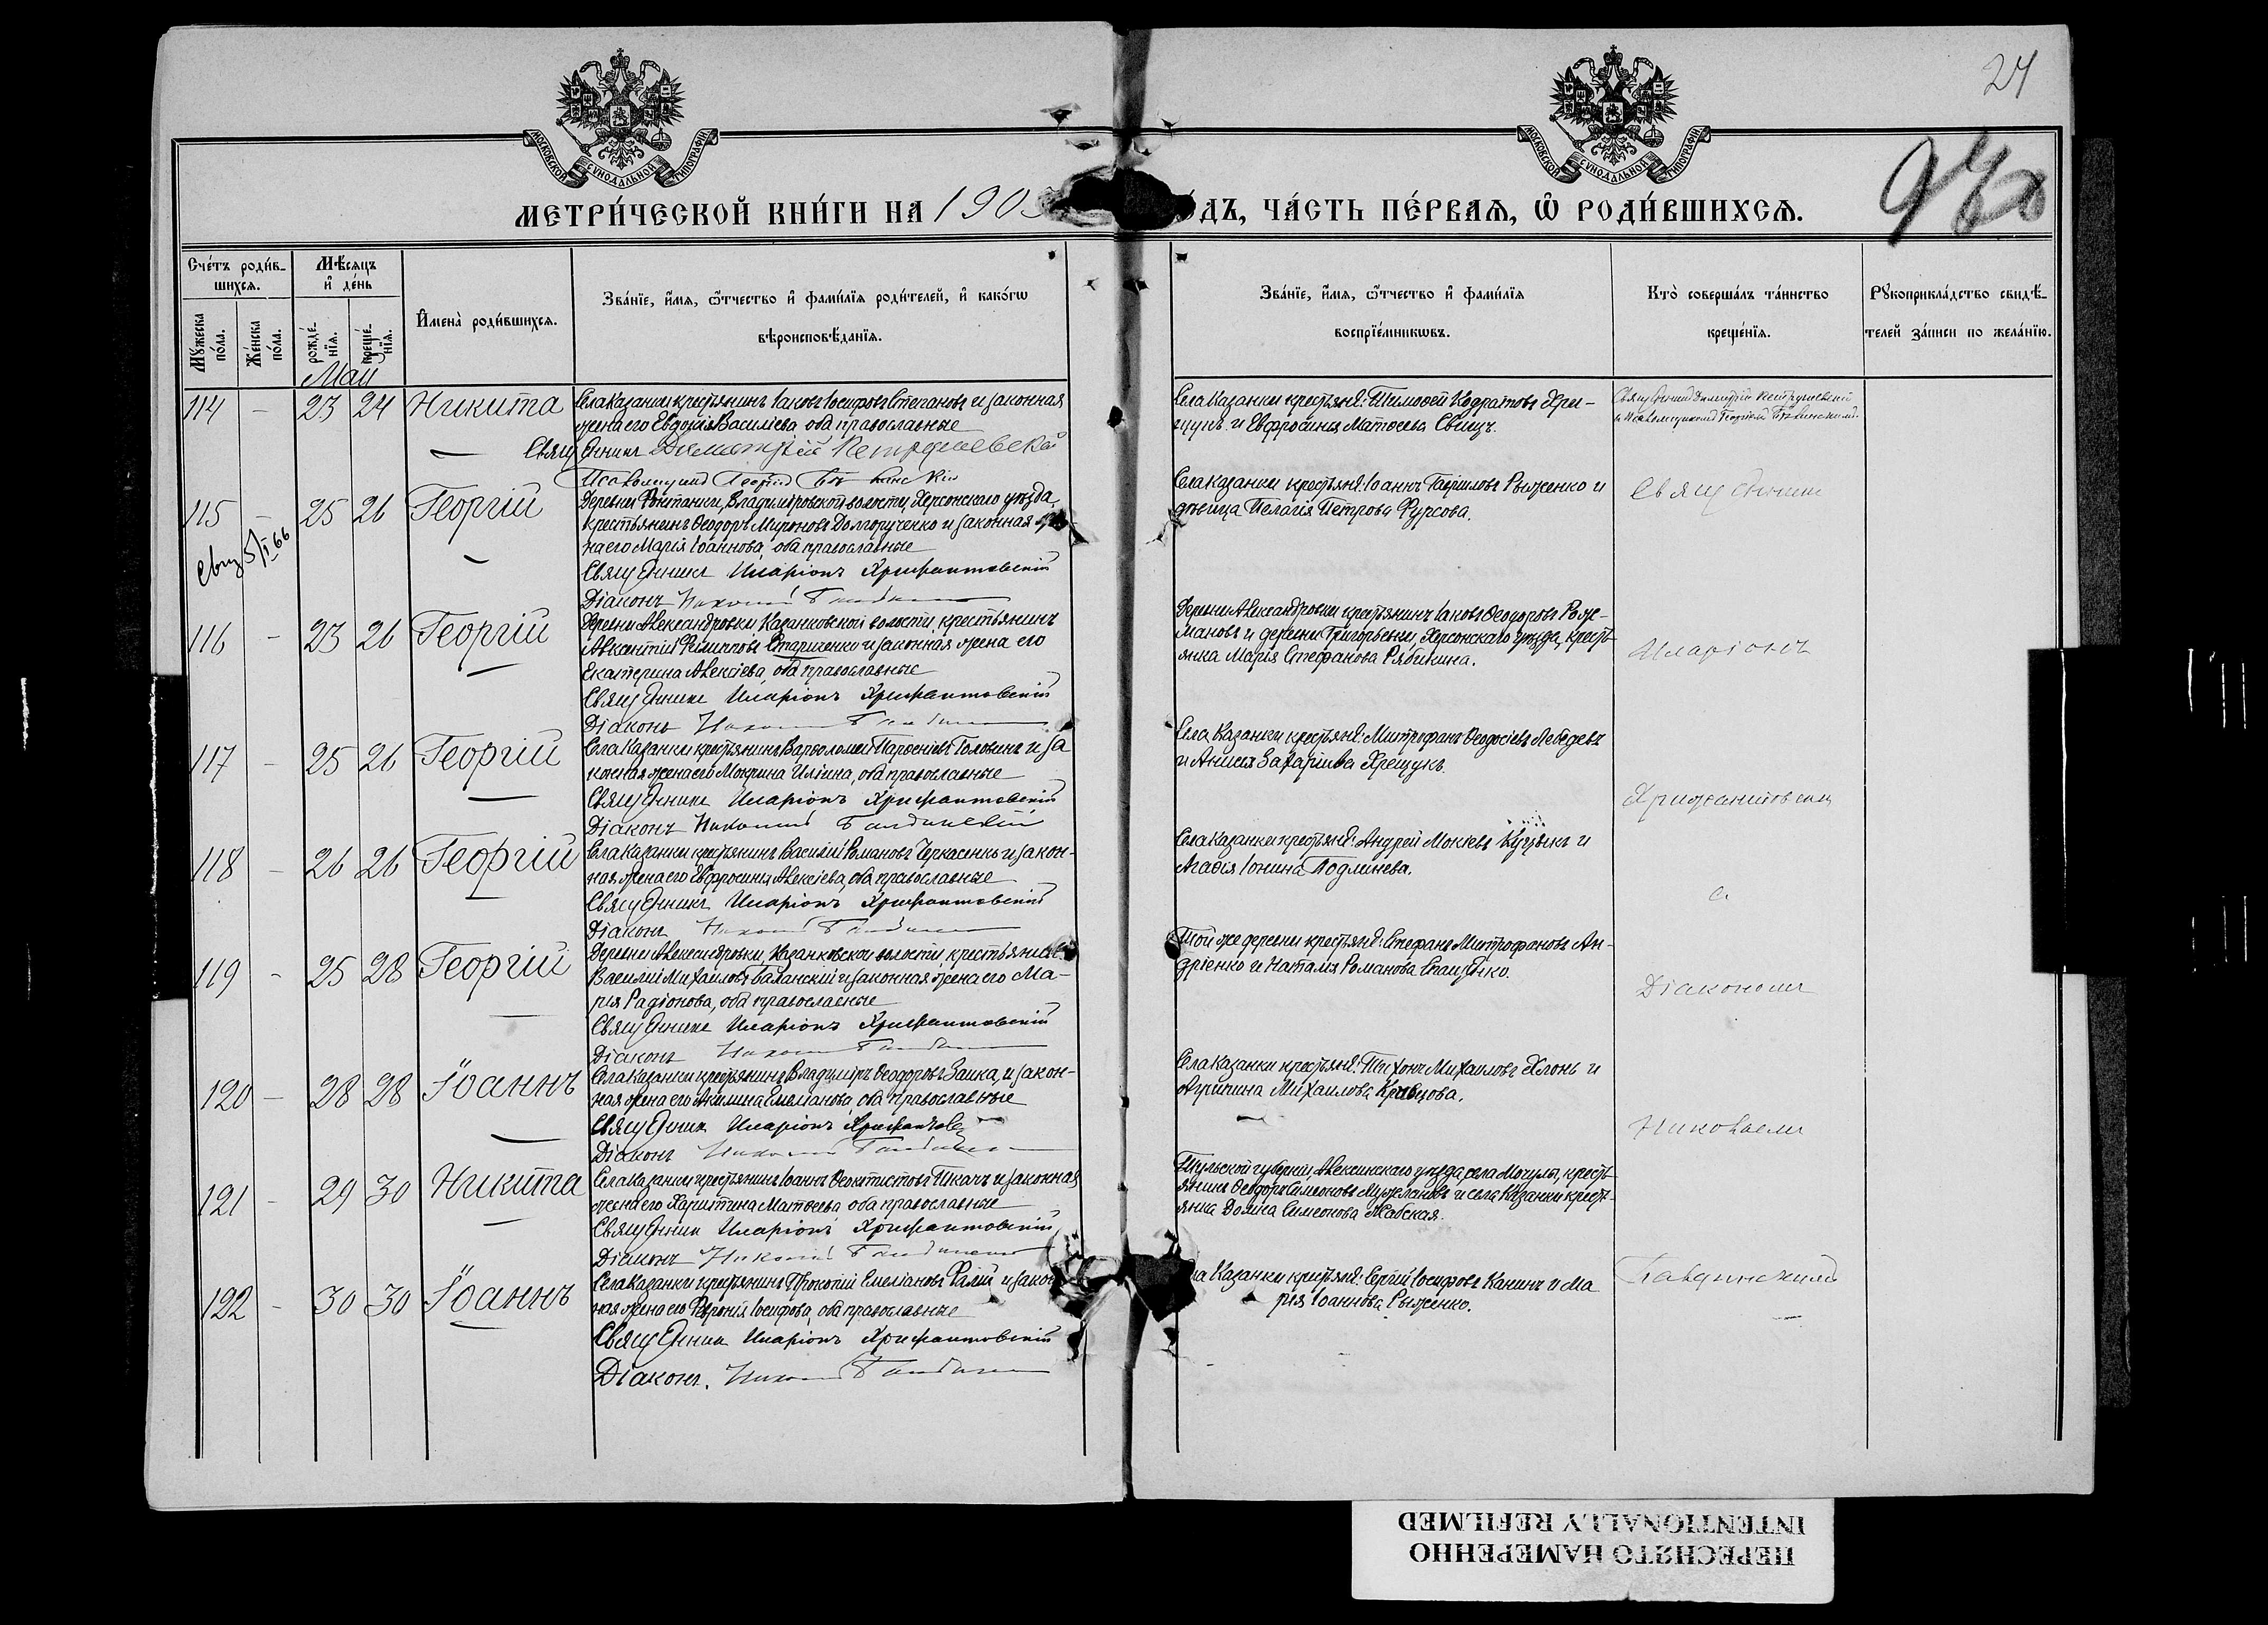 24
МОСКОВСКОЙ СУНОДАЛЬНОЙ ТИПОГРАФІИ
МОСКОВСКОЙ СУНОДАЛЬНОЙ ТИПОГРАФІИ
МЕТРИ́ЧЕСКОЙ КНИ́ГИ НА 190
ДЪ, ЧА́СТЬ ПЕ́РВАѦ, Ѡ҆ РОДИ́ВШИХСѦ.
Сче́тъ роди́в-
шихсѧ.
Мѣ́сѧцъ
и҆ де́нь
Мꙋ́жеска по́ла.
Же́нска по́ла.
рожде́-нїѧ.
креще́-нїѧ.
И҆мена̀ роди́вшихсѧ.
Зва́нїе, и҆́мѧ, ѻ҆́тчество и҆ фами́лїѧ роди́телей, и҆ како́гѡ
вѣроисповѣ́данїѧ.
Зва́нїе, и҆́мѧ, ѻ҆́тчество и҆ фами́лїѧ
воспрїе́мникѡвъ.
Кто̀ соверша́лъ та́инство
креще́нїѧ.
Рꙋкоприкла́дство свидѣ́-
телей за́писи по жела́нїю.
Май
114 - 23 24 Никита
Села Казанки крестьянинъ Іаковъ Іосифовъ Степановъ и законная
жена его Евдокія Василіева, оба православные
Священникъ Димитрій Петрушевскій
Псаломщикъ Георгій
Села Казанки крестьяне: Тимоѳей Кодратовъ Хри-
щукъ и Евфросинія Матѳеева Свищъ.
Священникъ Димитрій Петрушевскій
и Псаломщикомъ Георгіемъ
115 - 25 26 Георгій
Деревни Фонтанки, Владиміровской волости, Херсонскаго уѣзда,
крестьянинъ Ѳеодоръ Мироновъ Долгорученко и законная же-
на его Марія Іоаннова, оба православные
Священникъ Иларіонъ Хрисантовскій
Діаконъ Николай
Села Казанки крестьяне: Іоаннъ Гавриловъ Рыженко и
дѣвица Пелагія Петрова Фурсова.
Священникъ
5/I 66
116 - 23 26 Георгій
Деревни Александровки Казанковской волости, крестьянинъ
Авксентій Филипповъ Стариченко и законная жена его
Екатерина Алексіева, оба православные
Священникъ Иларіонъ Хрисантовскій
Діаконъ
Деревни Александровки крестьянинъ Іаковъ Ѳеодоровъ Рож-
мановъ и деревни Григорьевки, Херсонскаго уѣзда, кресть-
янка Марія Стефанова Рябикина.
Иларіонъ
117 - 25 26 Георгій
Села Казанки крестьянинъ Варѳоломей Парѳеніевъ Головинъ и за
конная жена его Мокрина Иліина, оба православные
Священникъ Иларіонъ Хрисантовскій
Діаконъ Николай
Села Казанки крестьяне: Митрофанъ Ѳеодосіевъ Лебедевъ
и Анисія Захаріева Хрещукъ.
118 - 26 26 Георгій
Села Казанки крестьянинъ Василій Романовъ Черкасенко и закон-
ная жена его Евфросинія Алексіева, оба православные
Священникъ Иларіонъ Хрисантовскій
Діаконъ
Села Казанки крестьяне: Андрей Мокіевъ и
Агаѳія Іонина Подлинева.
с
119 - 25 28 Георгій
Деревни Александровки, Казанковской волости, крестьянинъ
Василій Михаиловъ Баланскій и законная жена его Ма-
рія Радіонова, оба православные
Священникъ Иларіонъ Хрисантовскій
Діаконъ
Той же деревни крестьяне: Стефанъ Митрофановъ Ан-
дріенко и Наталія Романова Епащенко.
Діакономъ
120 - 28 28 Іоаннъ
Села Казанки крестьянинъ Владиміръ Ѳеодоровъ Заика, и закон-
ная жена его Акилина Емеліанова, оба православные
Священникъ Иларіонъ
Діаконъ
Села Казанки крестьяне: Тихонъ Михаиловъ Хлонь и
Агрипина Михаилова Кравцова.
Николаемъ
121 - 29 30 Никита
Села Казанки крестьянинъ Іоаннъ Ѳеоктистовъ Ткачъ и законная
жена его Харитина Матѳеева оба православные
Священникъ Иларіонъ Хрисантовскій
Діаконъ Николай
Тульской губерніи, Алексинскаго уѣзда, села Мочулы, кресть-
янинъ Ѳеодоръ Симеоновъ и села Казанки кресть-
янка Домна Симеонова
122 - 30 30 Іоаннъ
Села Казанки крестьянинъ Прокопій Емеліановъ Фалій и закон
ная жена его Февронія Іосифова, оба православные
Священникъ Иларіонъ Хрисантовскій
Діаконъ.
ла Казанки крестьяне: Сергій Іосифовъ Канинъ и Ма
рія Іоаннова Рыженко.
ПЕРЕСНЯТО НАМЕРЕННО
INTENTIONALLY REFILMED